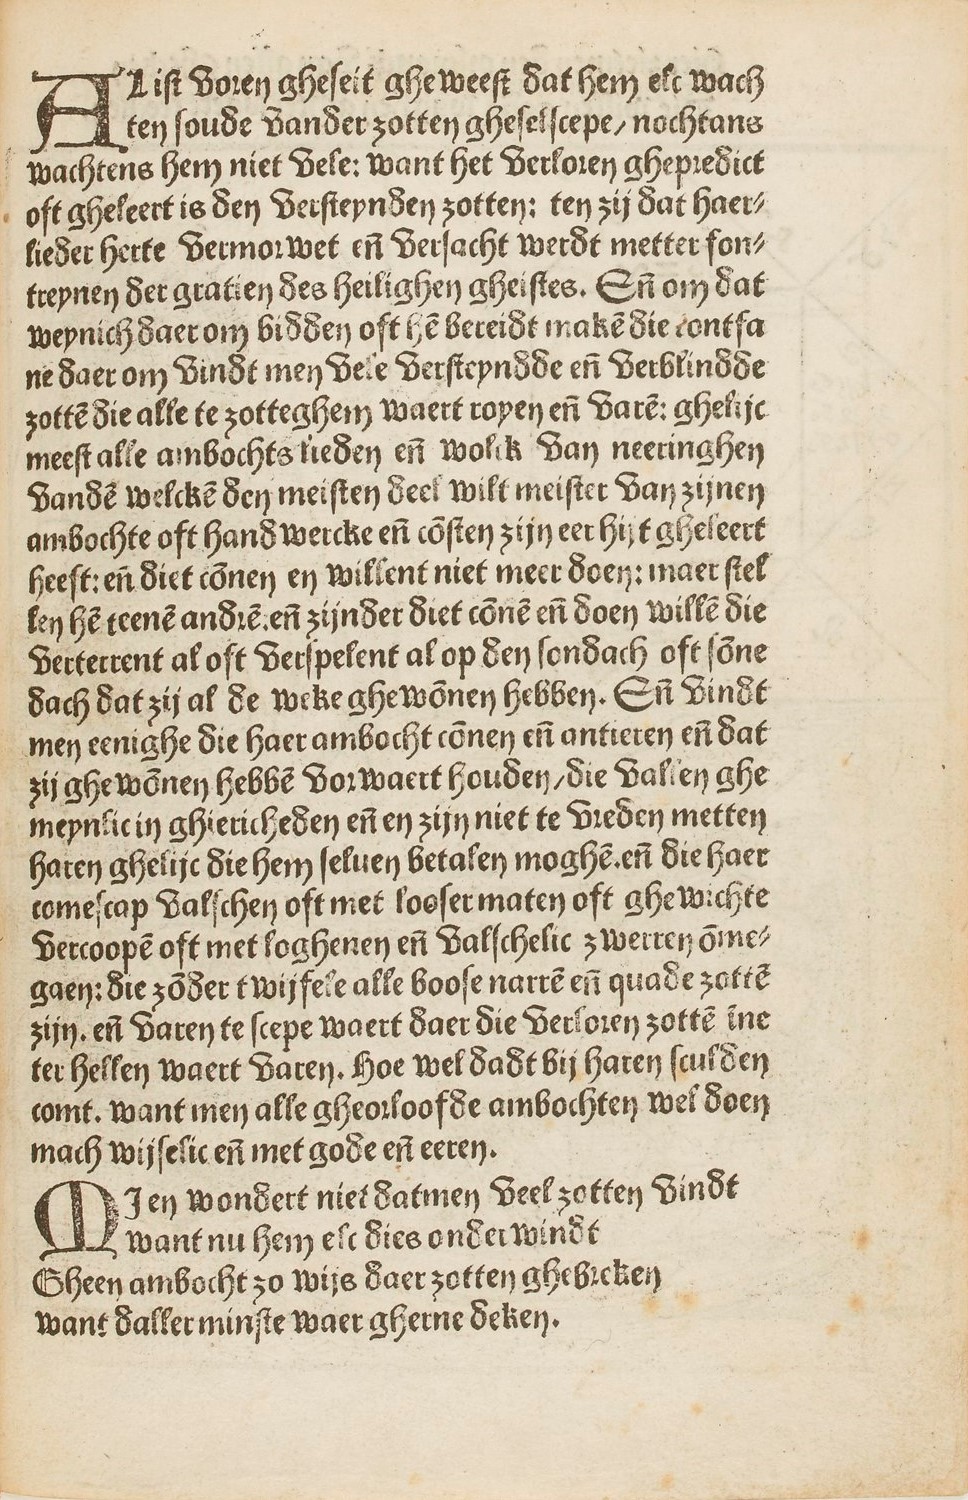 AList voren gheseit gheweest dat hem elc wach
ten soude vander zotten gheselscepe/ nochtans
wachtens hem niet vele: want het verloren ghepredict
oft gheleert is den versteynden zotten: ten zij dat haer⸗
lieder herte vermorwet en̄ versacht werdt metter fon⸗
treynen der gratien des heilighen gheistes. En̄ om dat
weynich daer om bidden oft hē bereidt makē die contfa
ne daer om vindt men vele versteyndde en̄ verblindde
zottē die alle te zotteghem waert royen en̄ varē: ghelijc
meest alle ambochts lieden en̄ wolck van neeringhen
vandē welckē den meisten deel wilt meister van zijnen
ambochte oft handwercke en̄ cōsten zijn eer hijt gheleert
heeft: en̄ diet cōnen en willent niet meer doen: maer stel
len hē teenē andrē. en̄ zijnder diet cōnē en̄ doen willē die
verterrent al oft verspelent al op den sondach oft sōne
dach dat zij al de weke ghewōnen hebben. En̄ vindt
men eenighe die haer ambocht cōnen en̄ antieren en̄ dat
zij ghewōnen hebbē vorwaert houden/ die vallen ghe
meynlic in ghiericheden en̄ en zijn niet te vreden metten
haren ghelijc die hem seluen betalen moghē. en̄ die haer
comescap valschen oft met looser maten oft ghewichte
vercoopē oft met loghenen en̄ valschelic zwerren ōme⸗
gaen: die zōder twijfele alle boose narrē en̄ quade zottē
zijn. en̄ varen te scepe waert daer die verloren zottē īne
ter hellen waert varen. Hoe wel dadt bij haren sculden
comt. want men alle gheorloofde ambochten wel doen
mach wijselic en̄ met gode en̄ eeren.
MJen wondert niet datmen veel zotten vindt
want nu hem elc dies onderwindt
Gheen ambocht zo wijs daer zotten ghebreken
want daller minste waer gherne deken.